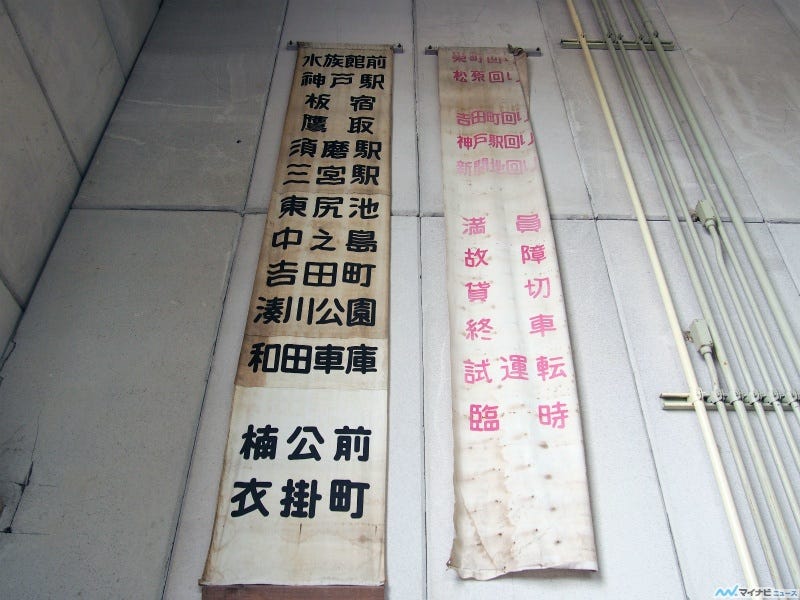 水族館前
神戸駅
板宿
鷹取
須磨駅
三宮駅
東尻池
中之島
吉田町
湊川公園
和田車庫
楠公前
衣掛町
松原回り
吉田町回り
神戸駅回り
満員
故障
貸切
終車
試運転
臨時
マイナビニュース